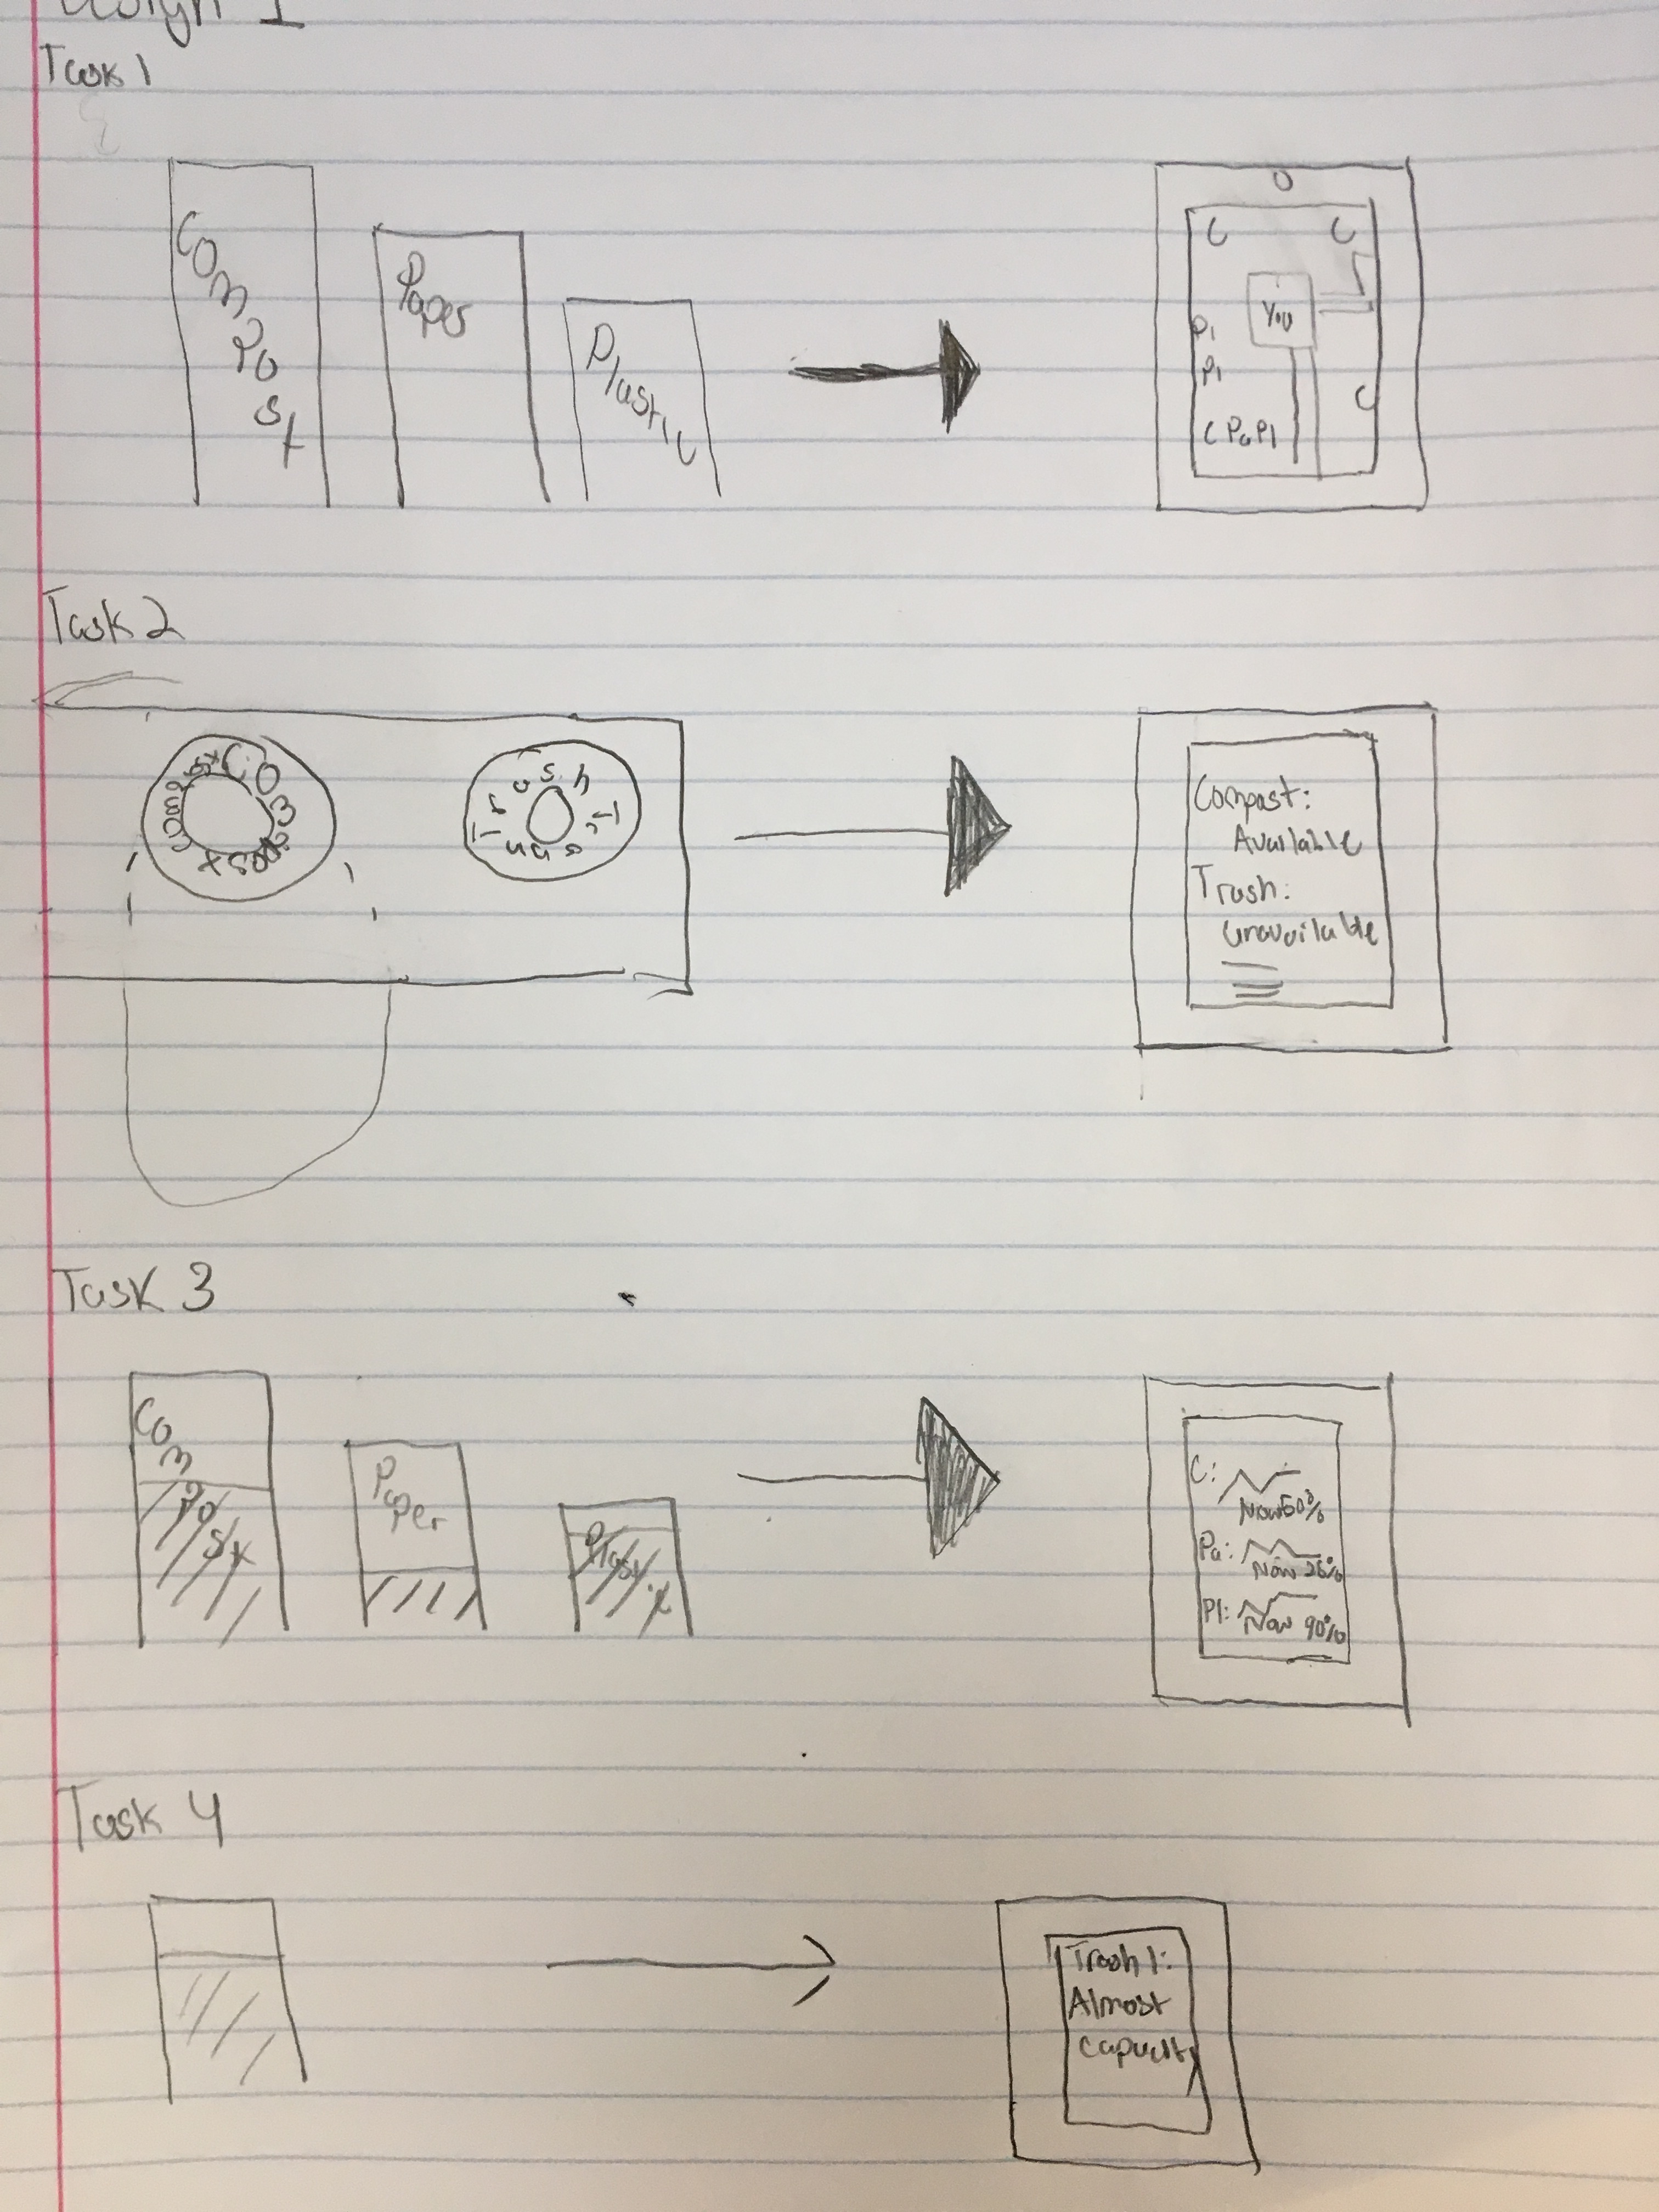 Design 1
Task 1
Compost
Paper
Plastic
C C
You
Pl
Pl
C
C Pa Pl
Task 2
Compost Compost
Trash Trash
Compost:
Available
Trash:
Unavailable
Task 3
Compost
Paper
Plastic
C:
Now 50%
Pa:
Now 25%
Pl:
Now 90%
Task 4
Trash 1:
Almost
capacity